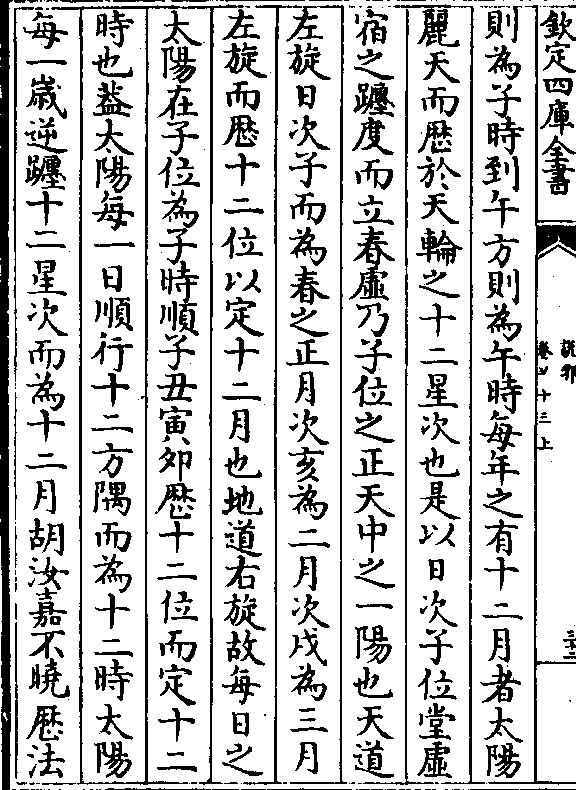 欽定四庫全書
說郛
卷四十三上
則為子時到午方則為午時每年之有十二月者太陽
麗天而歴於天輪之十二星次也是以日次子位堂虛
宿之躔度而立春虛乃子位之正天中之一陽也天道
左旋日次子而為春之正月次亥為二月次戌為三月
左旋而歴十二位以定十二月也地道右旋故每日之
太陽在子位為子時順子丑寅夘歴十二位而定十二
時也葢太陽每一日順行十二方隅而為十二時太陽
每一歲逆躔十二星次而為十二月胡汝嘉不曉歴法